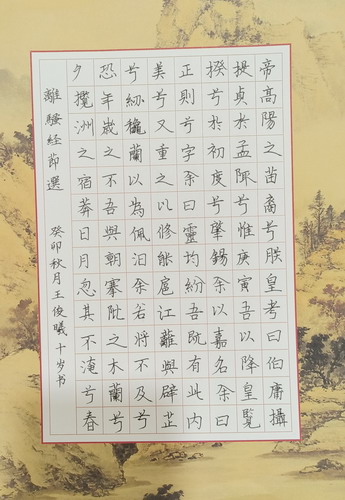 帝高陽之苗裔兮朕皇考曰伯庸攝
提貞於孟陬兮惟庚寅吾以降皇覽
揆兮於初度兮肇錫余以嘉名余曰
正則兮字余曰靈均紛吾既有此内
美兮又重之以修能扈江蘺與辟芷
兮紉穐蘭以為佩汩余若將不及兮
恐年歲之不吾與朝搴阰之木蘭兮
夕攬洲之宿莽日月忽其不淹兮春
離騷經節選 癸卯秋月王俊曦十岁书